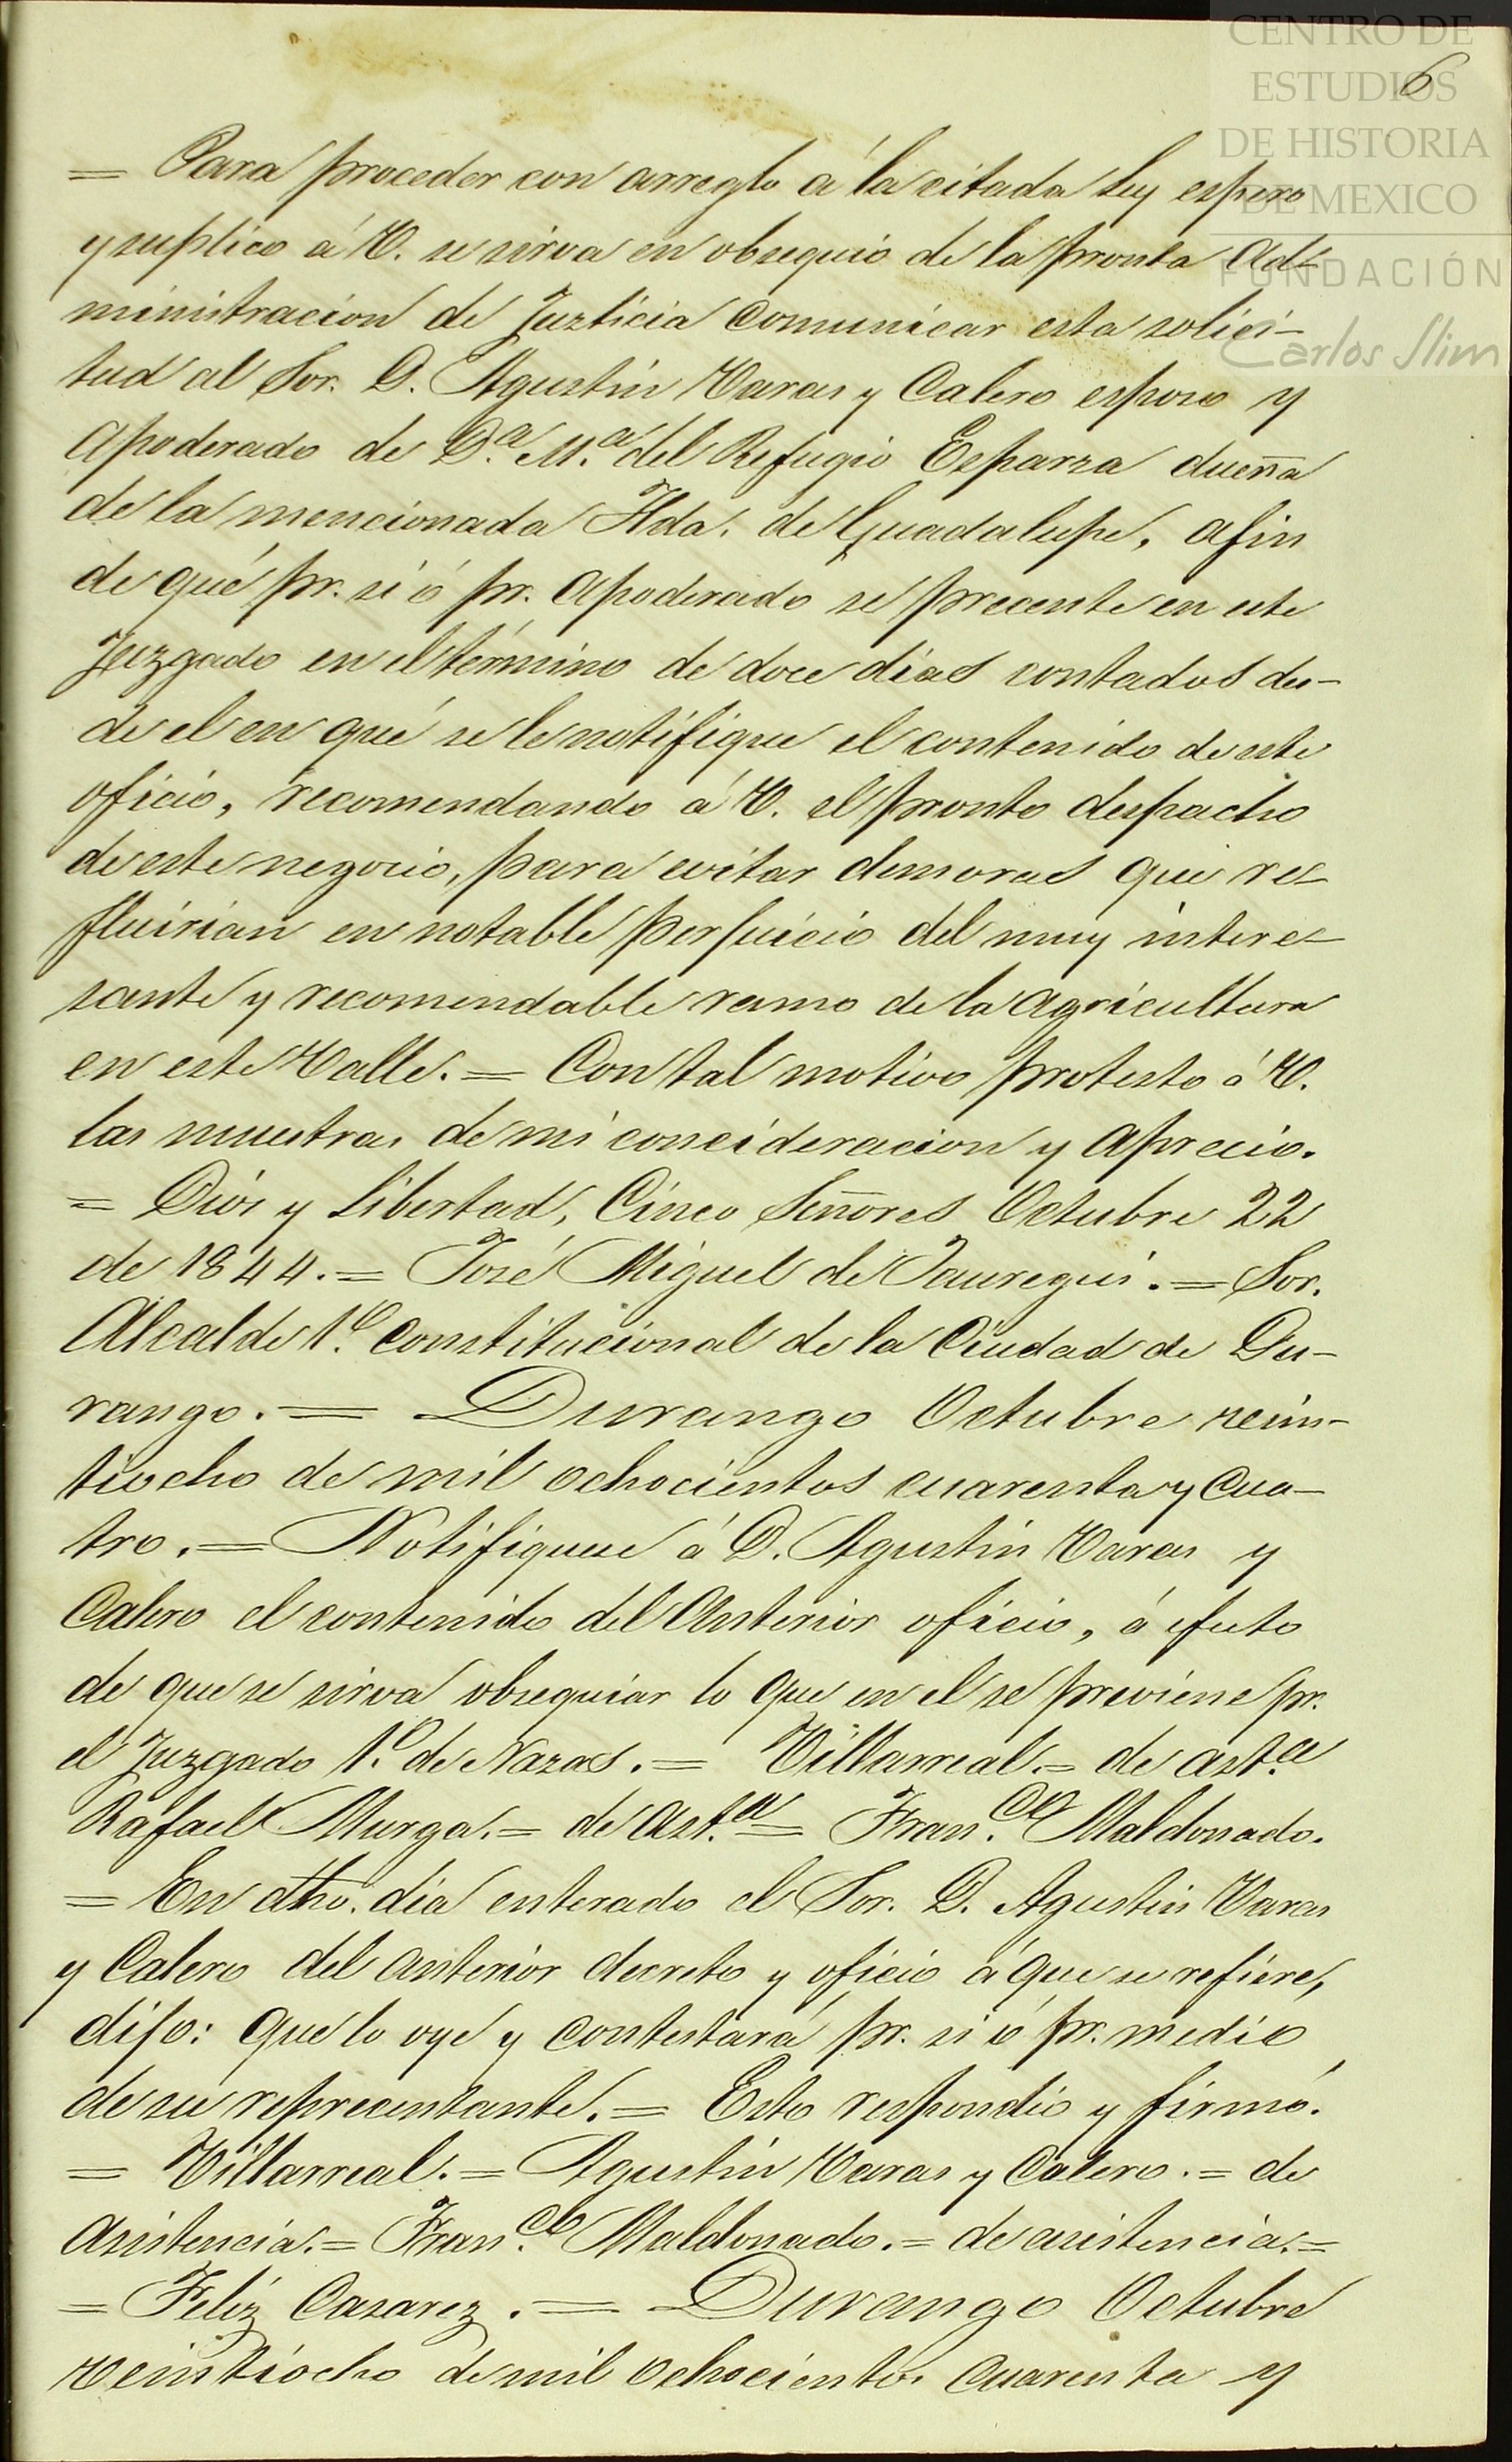 CENTRO DE
ESTUDIOS
DE HISTORIA
DE MEXICO
FUNDACIÓN
Carlos Slim
6
= Para proceder con arreglo á la citada Ley espero
y suplico á V. se sirva en obsequio de la pronta Ad-
ministracion de Justicia comunicar esta solici-
tud al Sor. D. Agustin Varas y Calero esposo y
Apoderado de D.ª M.ª del Refugio Esparza dueña
de la mencionada Hda. de Guadalupe, afin
de qué pr. si ó pr. Apoderado se precente en este
Juzgado en el término de doce dias contados des-
de el en qué se le notifique el contenido de este
oficio, recomendando á V. el pronto despacho
de este negocio, para evitar demoras que re-
fluirian en notable perjuicio del muy intere-
sante y recomendable ramo de la Agricultura
en este Valle. = Con tal motivo protesto á V.
las muestras de mi concideracion y aprecio.
= Dios y Libertad, Cinco Señores Octubre 22
de 1844. = José Miguel de Jauregui. = Sor.
Alcalde 1º. Constitucional de la Ciudad de Du-
rango. = Durango Octubre vein-
tiocho de mil ochocientos cuarenta y cua-
tro. = Notifiquese á D. Agustin Varas y
Calero el contenido del Anterior oficio, á efecto
de que se sirva obsequiar lo que en el se previene pr.
el Juzgado 1º. de Nazas. = Villarreal. = de ast.ª
Rafael Murga. = de Ast.ª = Fran.co Maldonado.
= En dho. dia enterado el Sor. D. Agustin Varas
y Calero del anterior decreto y oficio á que se refiere,
dijo: que lo oye y contestará pr. si ó pr. medio
de su reprecentante. = Esto respondió y firmó.
= Villarreal. = Agustin Varas y Calero. = de
Asistencia. = Fran.co Maldonado. = de asistencia. =
= Feliz Casarez. = Durango Octubre
veintiocho de mil ochocientos cuarenta y